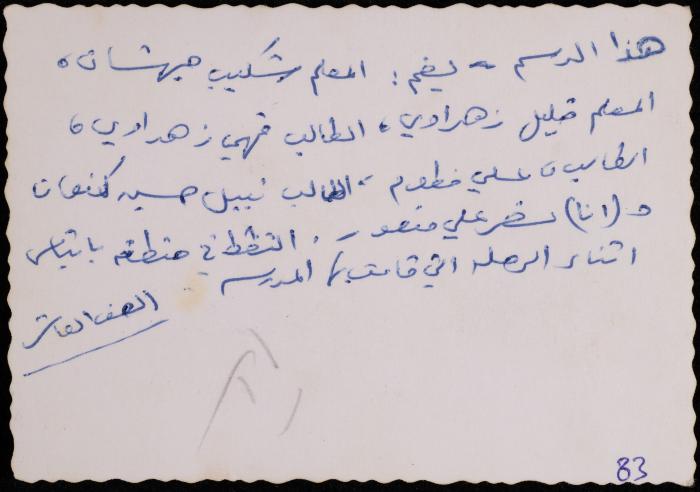 هذا الرسم - يضم: المعلم شكيب جهشان،
المعلم خليل زهراوي، الطالب فهمي زهراوي،
الطالب، علي فطوم، الطالب نبيل حسين كنعان
و (انا) خضر علي منصور. التقطت في منطقة بانياس
اثناء الرحلة التي قامت بها المدرسة
الصف العاشر
83